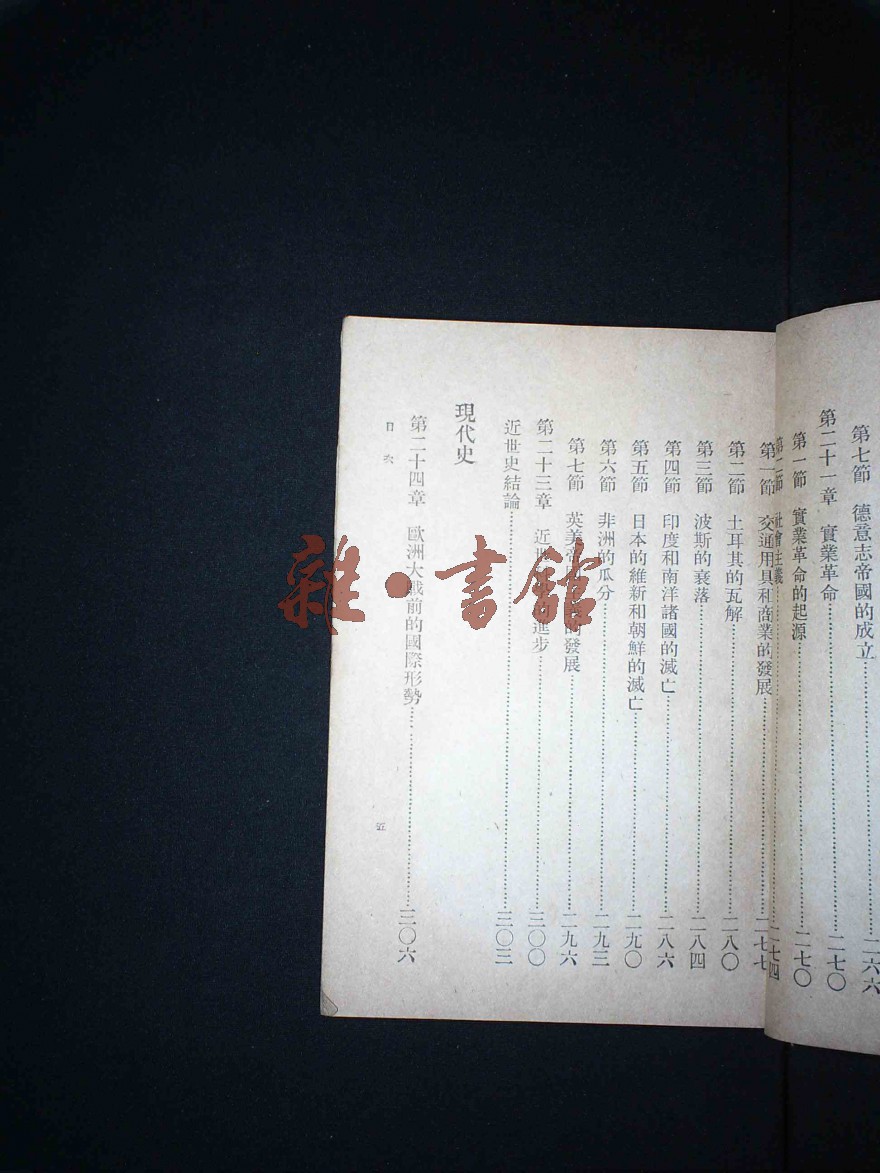 第七節　德意志帝國的成立……二六六
第二十一章　實業革命……二七〇
第一節　實業革命的起源……二七〇
第二節　社會主義……二七四
第一節　交通用具和商業的發展……二七七
第二節　土耳其的瓦解……二八〇
第三節　波斯的衰落……二八四
第四節　印度和南洋諸國的滅亡……二八六
第五節　日本的維新和朝鮮的滅亡……二九〇
第六節　非洲的瓜分……二九三
第七節　英美帝國　的發展……二九六
第二十三章　近世　進步……三〇〇
近世史結論……三〇三
現代史
第二十四章　歐洲大戰前的國際形勢……三〇六
目次
五
雜·書館